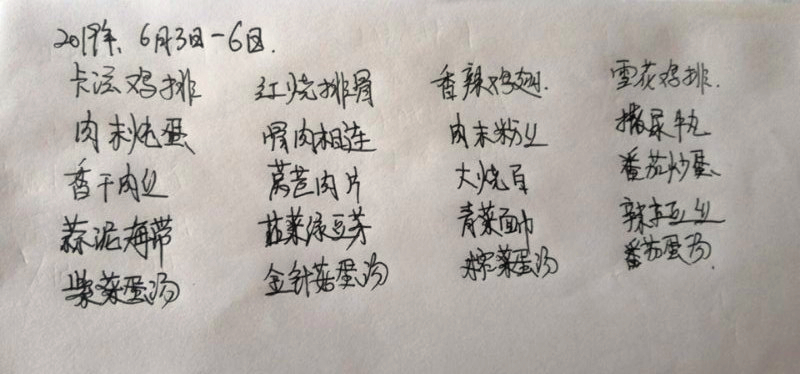 2019年、6月3日-6日.
卡滋鸡排 红烧排骨 香辣鸡翅. 雪花鸡排.
肉末炖蛋 骨肉相连 肉末粉丝 撒尿牛丸
香干肉丝 莴苣肉片 大烧百 番茄炒蛋
蒜泥海带 韭菜绿豆芽 青菜面巾 辣豆丝
紫菜蛋汤 金针菇蛋汤 榨菜蛋汤 番茄蛋汤.